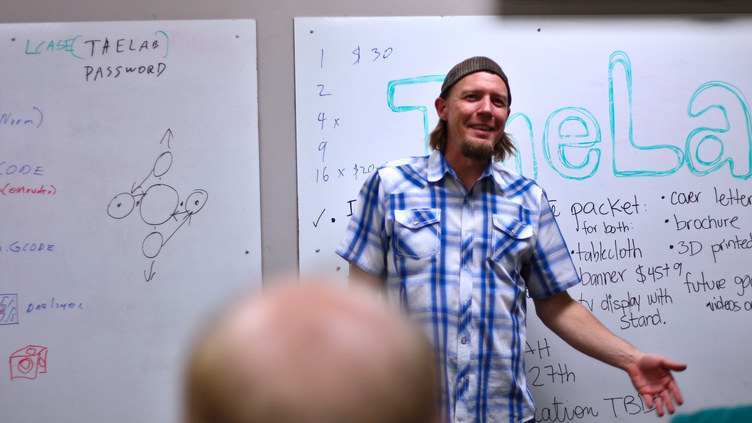 LCASE(THELAB)
PASSWORD
CODE
GCODE
1 $30
2
4 x
9
16 x $20
TheLa
✓ I
e packet:
for both:
tablecloth
banner $45+9
tv display with
stand.
• cover letter
• brochure
• 3D printed
future ga
videos o
AH
27th
ation TBD